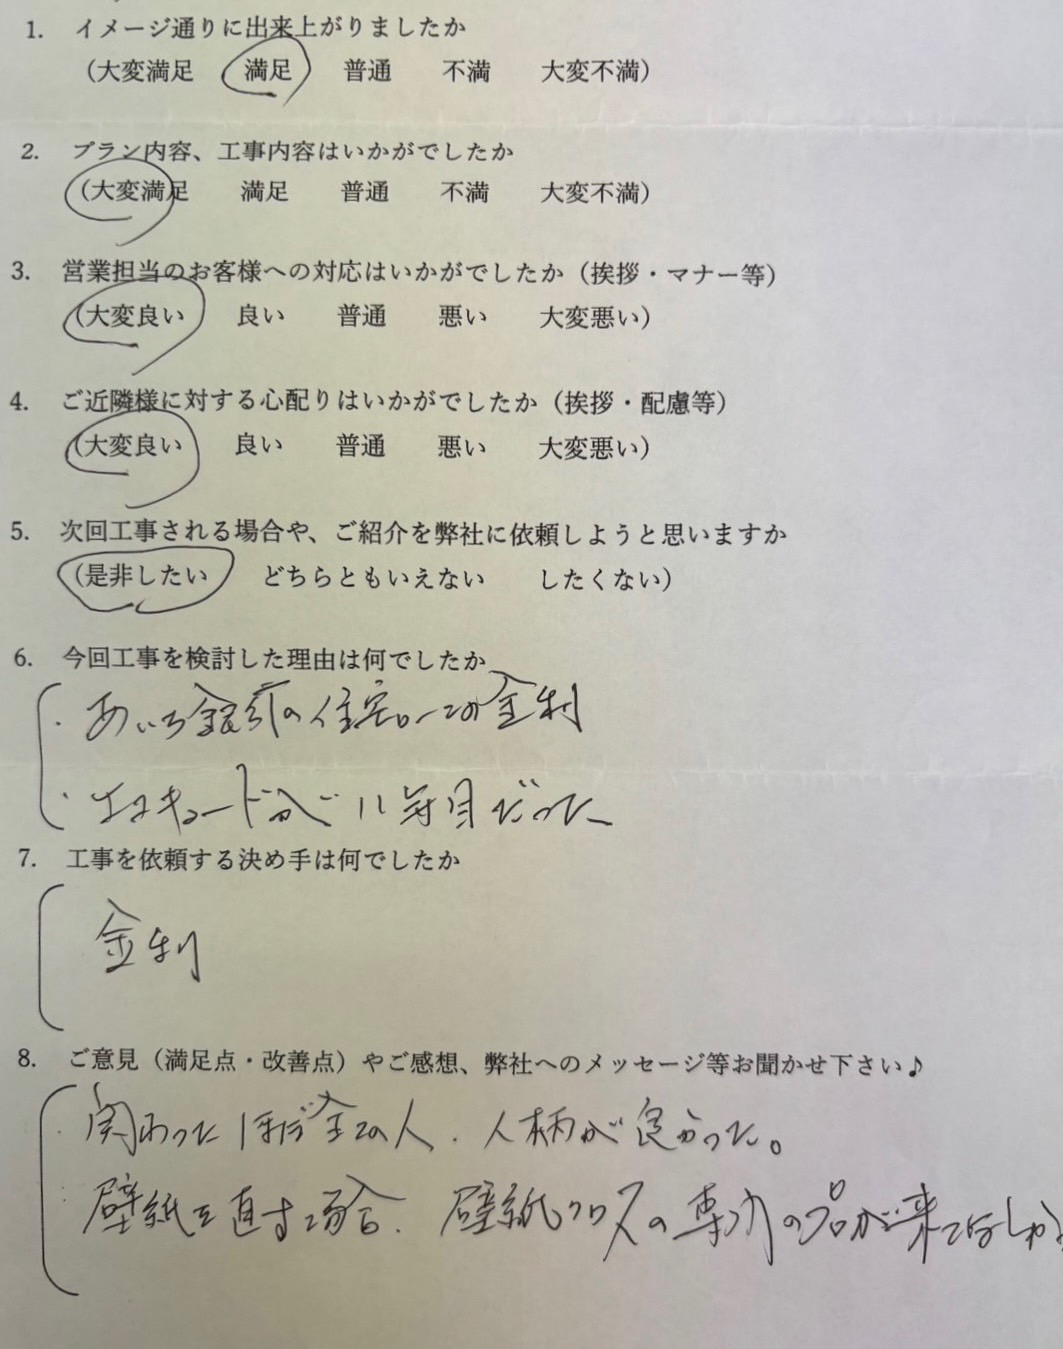 1. イメージ通りに出来上がりましたか
(大変満足 満足 普通 不満 大変不満)
2. プラン内容、工事内容はいかがでしたか
(大変満足 満足 普通 不満 大変不満)
3. 営業担当のお客様への対応はいかがでしたか（挨拶・マナー等）
(大変良い 良い 普通 悪い 大変悪い)
4. ご近隣様に対する心配りはいかがでしたか（挨拶・配慮等）
(大変良い 良い 普通 悪い 大変悪い)
5. 次回工事される場合や、ご紹介を弊社に依頼しようと思いますか
(是非したい どちらともいえない したくない)
6. 今回工事を検討した理由は何でしたか
・あいち銀行の住宅ローンの金利
・エコキュートが11年目だった
7. 工事を依頼する決め手は何でしたか
金利
8. ご意見（満足点・改善点）やご感想、弊社へのメッセージ等お聞かせ下さい♪
・関わったほぼ全ての人、人柄が良かった。
・壁紙を直す場合、壁紙クロスの専門のプロが来てほしかっ